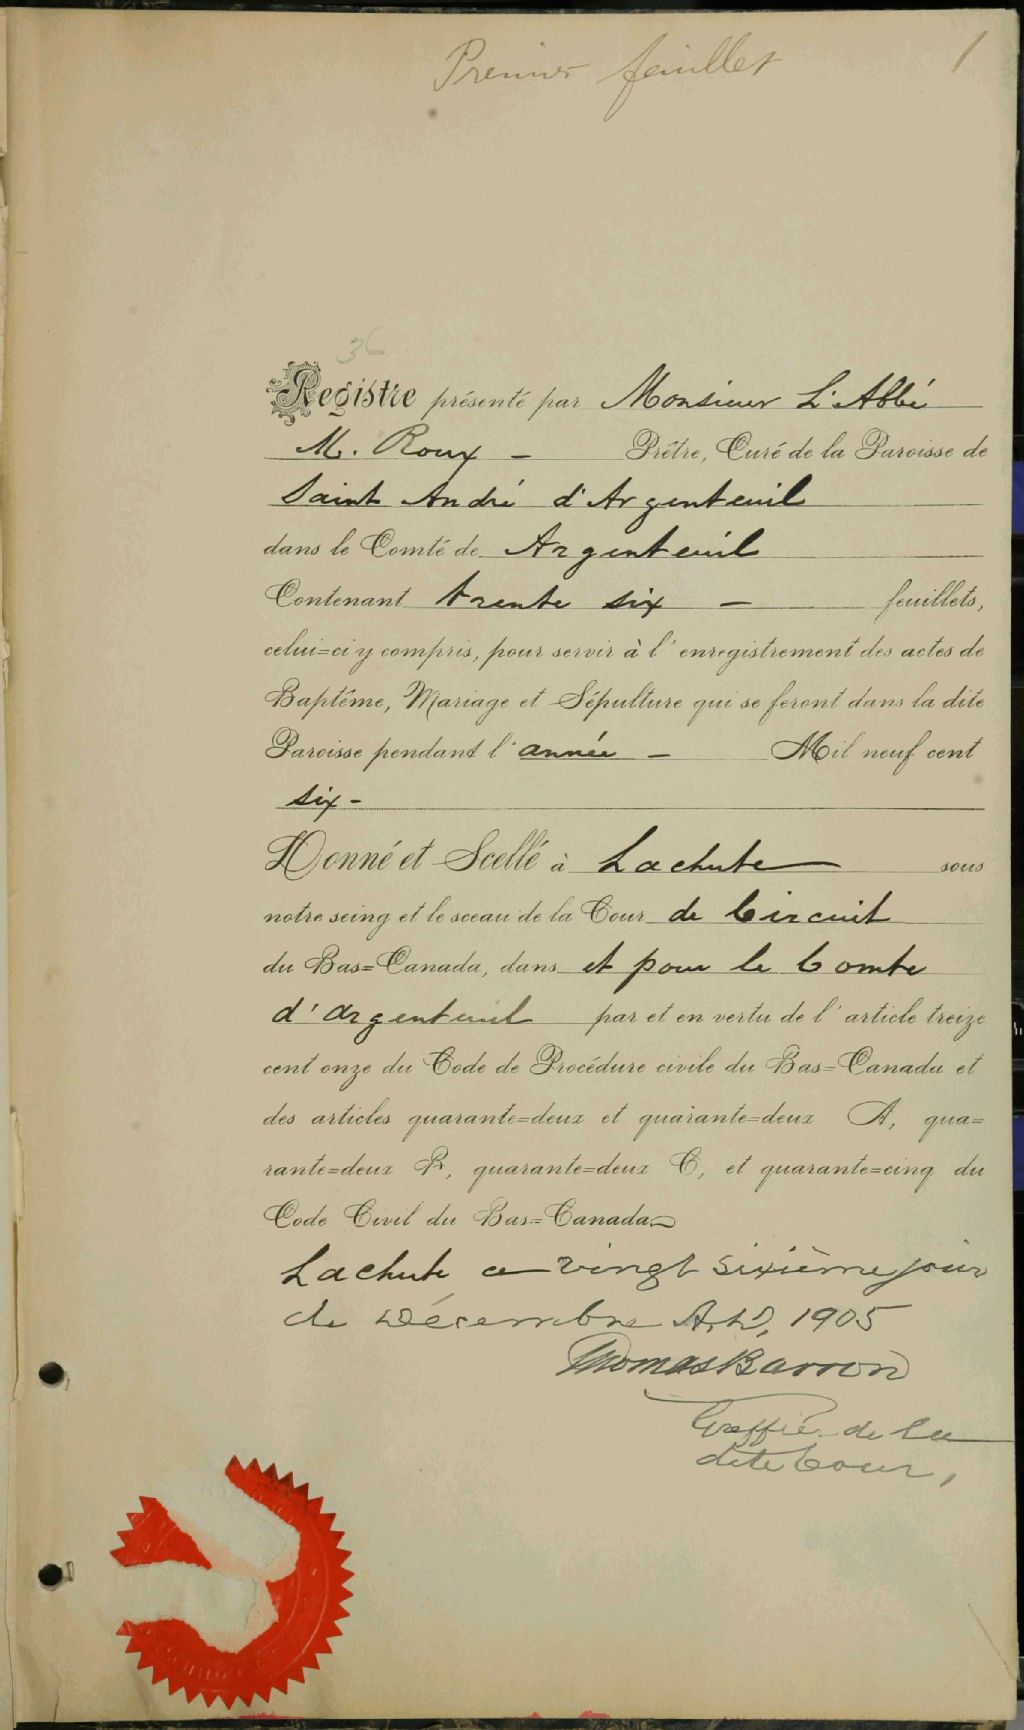 Premier feuillet 1
36
Registre présenté par Monsieur L'Abbé
M. Roux - Prêtre, Curé de la Paroisse de
Saint André d'Argenteuil
dans le Comté de Argenteuil
Contenant trente six - feuillets,
celui=ci y compris, pour servir à l'enregistrement des actes de
Baptême, Mariage et Sépulture qui se feront dans la dite
Paroisse pendant l'année - Mil neuf cent
six -
Donné et Scellé à Lachute sous
notre seing et le sceau de la Cour de Circuit
du Bas=Canada, dans et pour le Comte
d'Argenteuil par et en vertu de l'article treize
cent onze du Code de Procédure civile du Bas=Canada et
des articles quarante=deux et quarante=deux A, qua=
rante=deux B, quarante=deux C, et quarante=cinq du
Code Civil du Bas=Canada
Lachute ce vingt sixième jour
de Décembre A.D, 1905
Thomas Barron
Greffié de la
dite Cour,